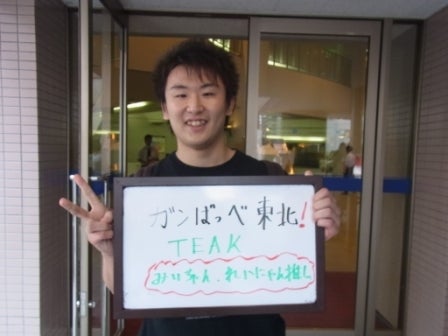 ガンばっべ東北!
TEAK
みいちゃん、れいにゃん推し